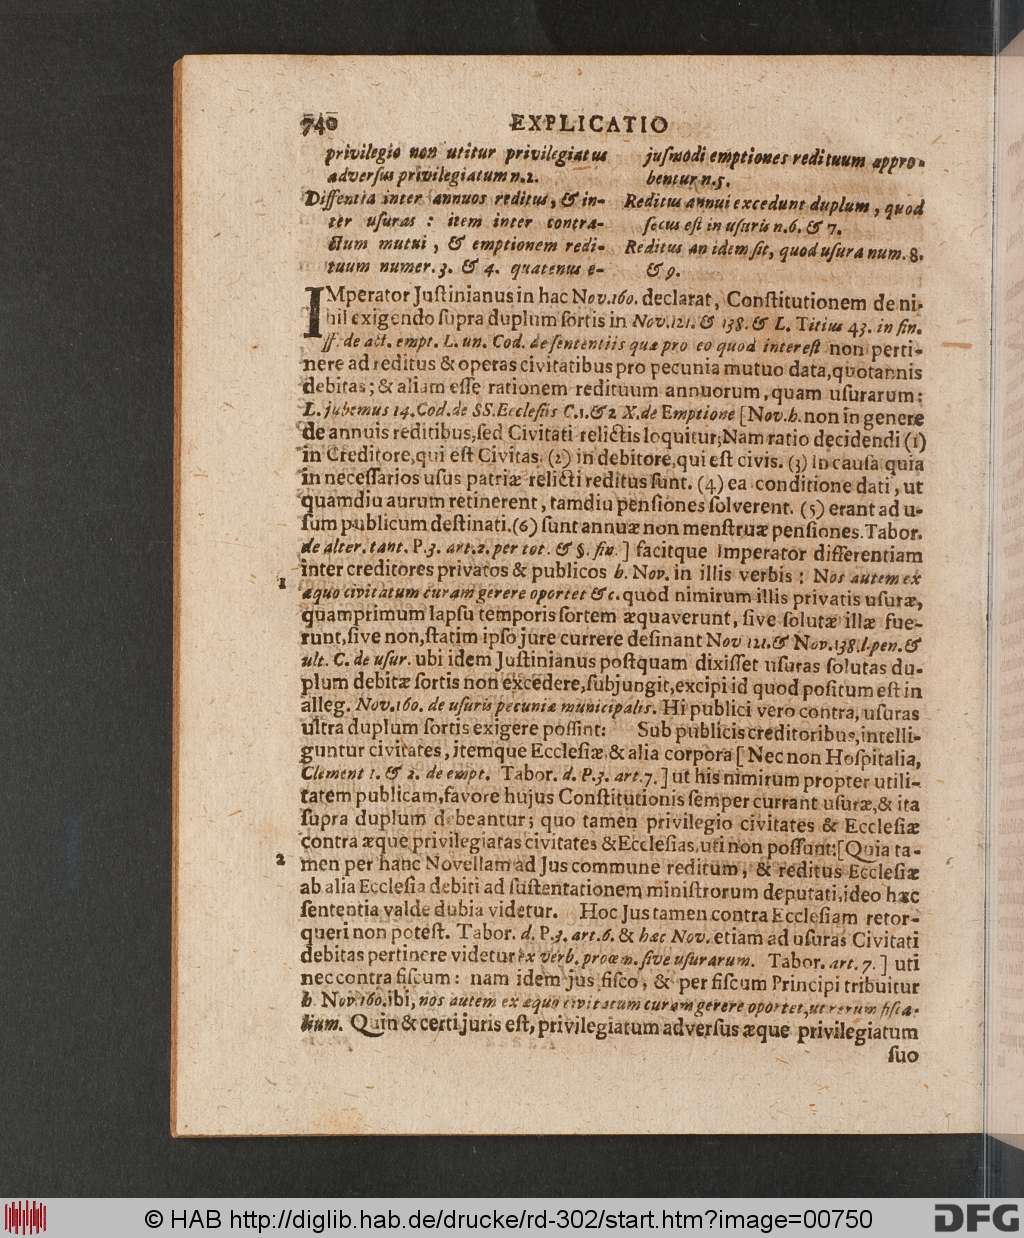 740 EXPLICATIO
privilegio non utitur privilegiatus
adverſus privilegiatum n.2.
Diſſentia inter annuos reditus, & in-
ter uſuras : item inter contra-
ctum mutui, & emptionem redi-
tuum numer. 3. & 4. quatenus e-
juſmodi emptiones redituum appro-
bentur n.5.
Reditus annui excedunt duplum, quod
ſecus eſt in uſuris n.6. & 7.
Reditus an idem ſit, quod uſura num. 8.
& 9.
IMperator Juſtinianus in hac Nov. 160. declarat, Conſtitutionem de ni-
hil exigendo ſupra duplum ſortis in Nov. 121. & 138. & L. Titius 43. in fin.
ff. de act. empt. L. un. Cod. de ſententiis quæ pro eo quod intereſt non perti-
nere ad reditus & operas civitatibus pro pecunia mutuo data, quotannis
debitas; & aliam eſſe rationem redituum annuorum, quam uſurarum:
L. jubemus 14. Cod. de SS. Eccleſiis C.1. & 2 X. de Emptione [Nov. h. non in genere
de annuis reditibus, ſed Civitati relictis loquitur; Nam ratio decidendi (1)
in Creditore, qui eſt Civitas. (2) in debitore, qui eſt civis. (3) in cauſa quia
in neceſſarios uſus patriæ relicti reditus ſunt. (4) ea conditione dati, ut
quamdiu aurum retinerent, tamdiu penſiones ſolverent. (5) erant ad u-
ſum publicum deſtinati. (6) ſunt annuæ non menſtruæ penſiones. Tabor.
de alter. tant. P.3. art.2. per tot. & §. fin. ] facitque Imperator differentiam
inter creditores privatos & publicos h. Nov. in illis verbis : Nos autem ex
1 æquo civitatum curam gerere oportet &c. quod nimirum illis privatis uſuræ,
quamprimum lapſu temporis ſortem æquaverunt, ſive ſolutæ illæ fue-
runt, ſive non, ſtatim ipſo jure currere deſinant Nov 121. & Nov. 138. l. pen. &
ult. C. de uſur. ubi idem Juſtinianus poſtquam dixiſſet uſuras ſolutas du-
plum debitæ ſortis non excedere, ſubjungit, excipi id quod poſitum eſt in
alleg. Nov. 160. de uſuris pecuniæ municipalis. Hi publici vero contra, uſuras
ultra duplum ſortis exigere poſſint: Sub publicis creditoribus, intelli-
guntur civitates, itemque Eccleſiæ, & alia corpora [ Nec non Hoſpitalia,
Clement 1. & 2. de empt. Tabor. d. P.3. art.7. ] ut his nimirum propter utili-
tatem publicam, favore hujus Conſtitutionis ſemper currant uſuræ, & ita
ſupra duplum debeantur; quo tamen privilegio civitates & Eccleſiæ
contra æque privilegiatas civitates & Eccleſias, uti non poſſunt: [Quia ta-
2 men per hanc Novellam ad Jus commune reditum, & reditus Eccleſiæ
ab alia Eccleſia debiti ad ſuſtentationem miniſtrorum deputati, ideo hæc
ſententia valde dubia videtur. Hoc Jus tamen contra Eccleſiam retor-
queri non poteſt. Tabor. d. P.3. art.6. & hæc Nov. etiam ad uſuras Civitati
debitas pertinere videtur ex verb. proœm. ſive uſurarum. Tabor. art. 7. ] uti
nec contra fiſcum: nam idem jus fiſco, & per fiſcum Principi tribuitur
h. Nov. 160. ibi, nos autem ex æquo civitatum curam gerere oportet, ut rerum fiſca-
lium. Quin & certi juris eſt, privilegiatum adverſus æque privilegiatum
ſuo
© HAB http://diglib.hab.de/drucke/rd-302/start.htm?image=00750 DFG